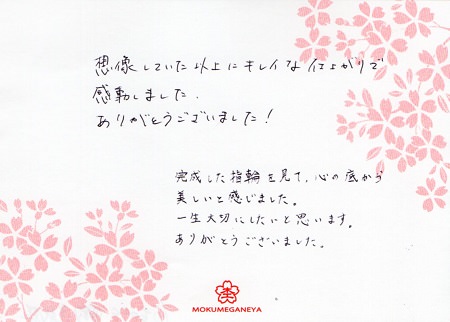 想像していた以上にキレイな仕上がりで
感動しました.
ありがとうございました!
完成した指輪を見て、心の底から
美しいと感じました。
一生大切にしたいと思います。
ありがとうございました。
MOKUMEGANEYA